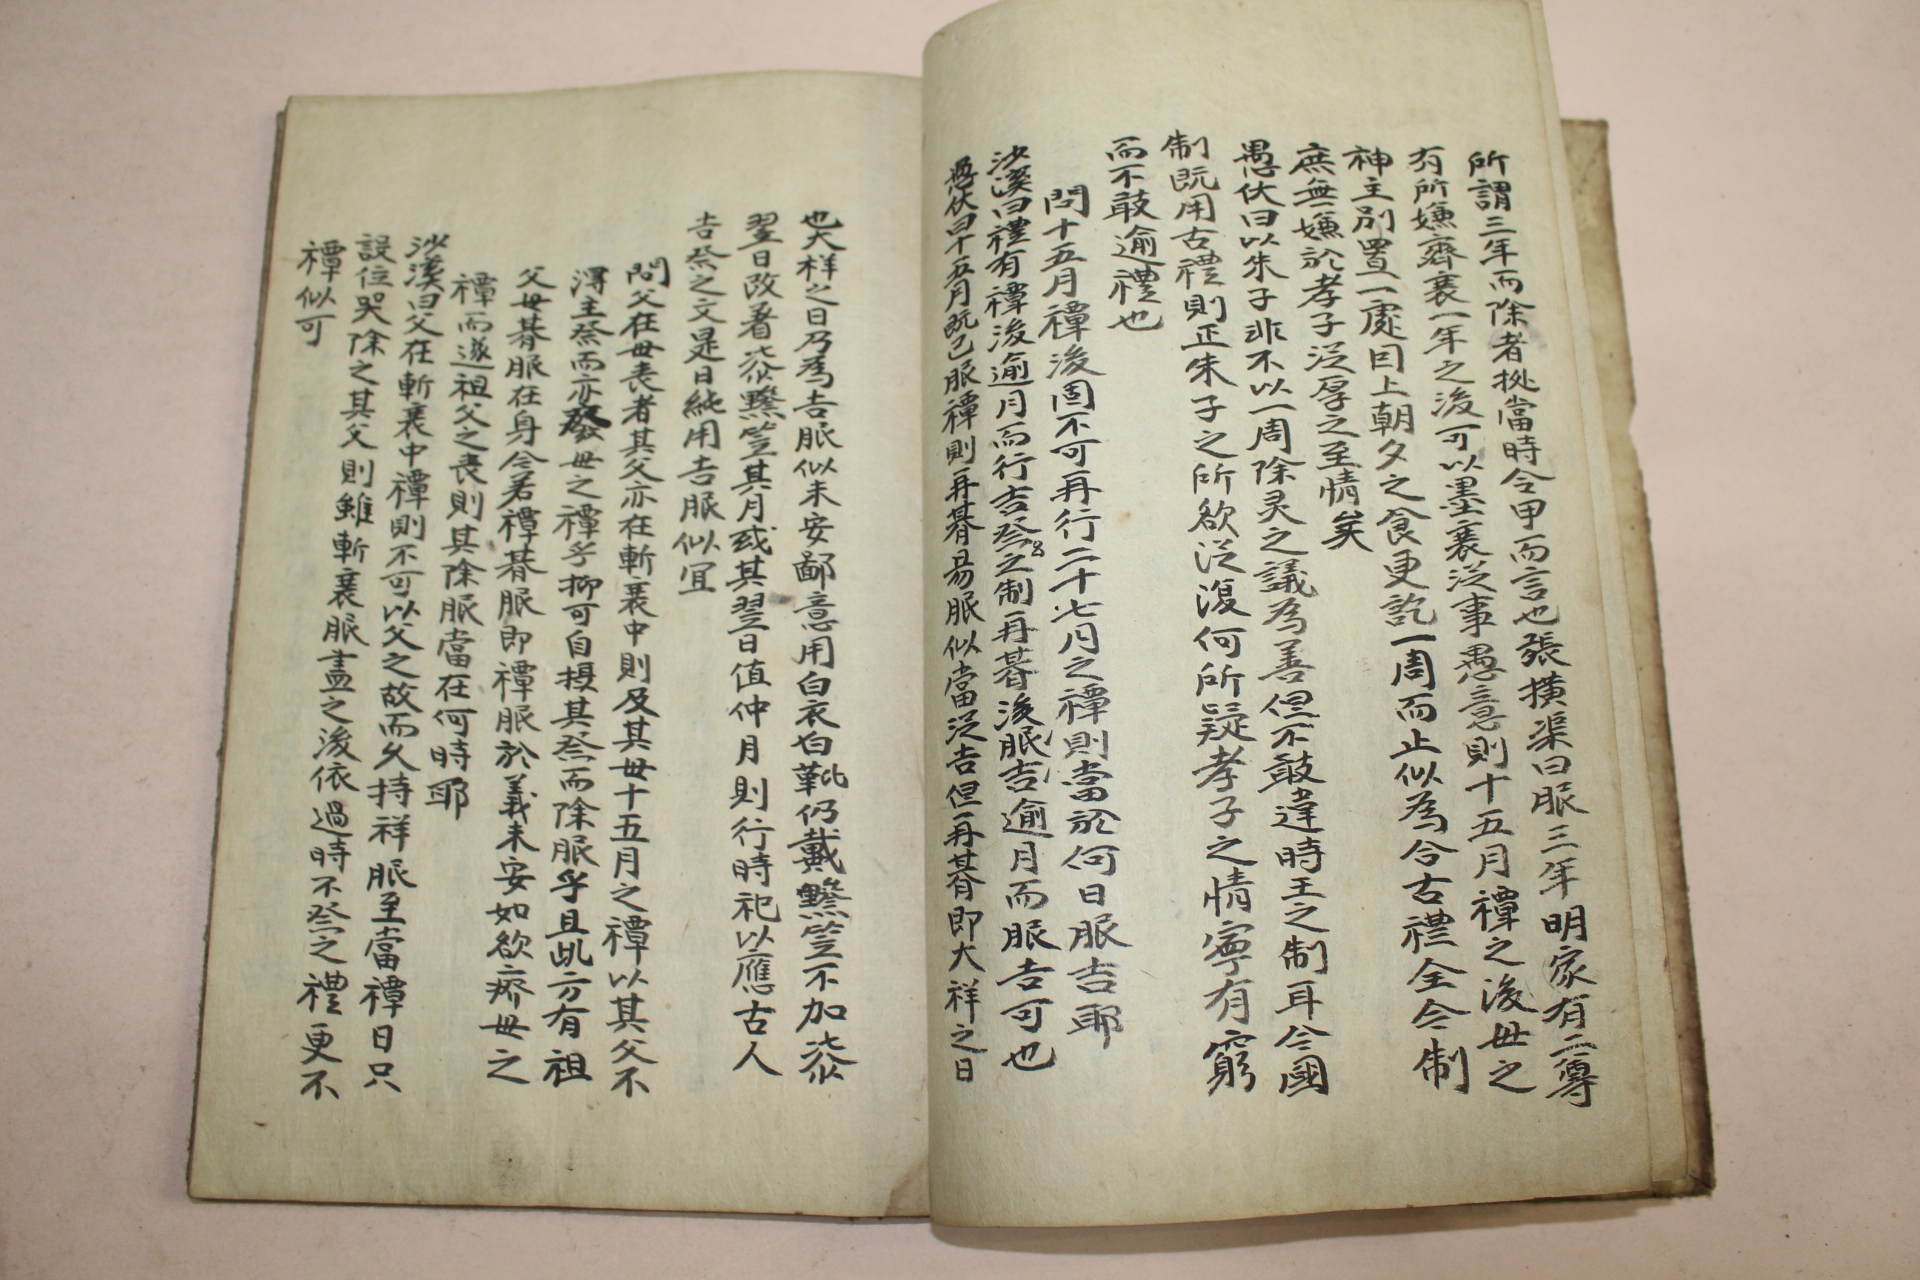 所謂三年而除者挑當時令甲而言也張橫渠曰服三年明家有二尊
有所嫌齊衰一年之後可以墨衰從事愚意則十五月禫之後毋之
神主別置一處因上朝夕之食更訖一周而止似為合古禮全今制
庶無嫌於孝子從厚之至情矣
愚伏曰以朱子非不以一周除灵之議為善但不敢違時王之制耳今國
制既用古禮則正朱子之所欲從復何所疑孝子之情寧有窮
而不敢逾禮也
問十五月禫後固不可再行二十七月之禫則當於何日服吉耶
沙溪曰禮有禫後逾月而行吉祭之制再朞後服吉逾月而服吉可也
愚伏曰十五月既已服禫則再朞易服似當從吉但再朞即大祥之日
也大祥之日乃為吉服似未安鄙意用白衣白靴仍戴黲笠不加漆
翌日改着漆黲笠其月或其翌日值仲月則行時祀以應古人
吉祭之文是日純用吉服似宜
問父在母喪者其父亦在斬衰中則及其母十五月之禫以其父不
淂主祭而亦廢母之禫乎抑可自攝其祭而除服乎且此方有祖
父母朞服在身今若禫朞服即禫服於義未安如欲癠母之
禫而遂祖父之喪則其除服當在何時耶
沙溪曰父在斬衰中禫則不可以父之故而久持祥服至當禫日只
設位哭除之其父則雖斬衰服盡之後依過時不祭之禮更不
禫似可